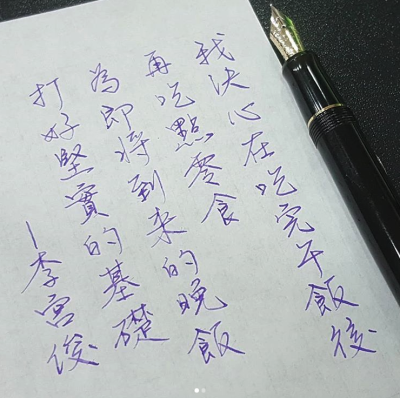 我決心在吃完午飯後
再吃點零食
為即將到來的晚飯
打好堅實的基礎
－李宮俊